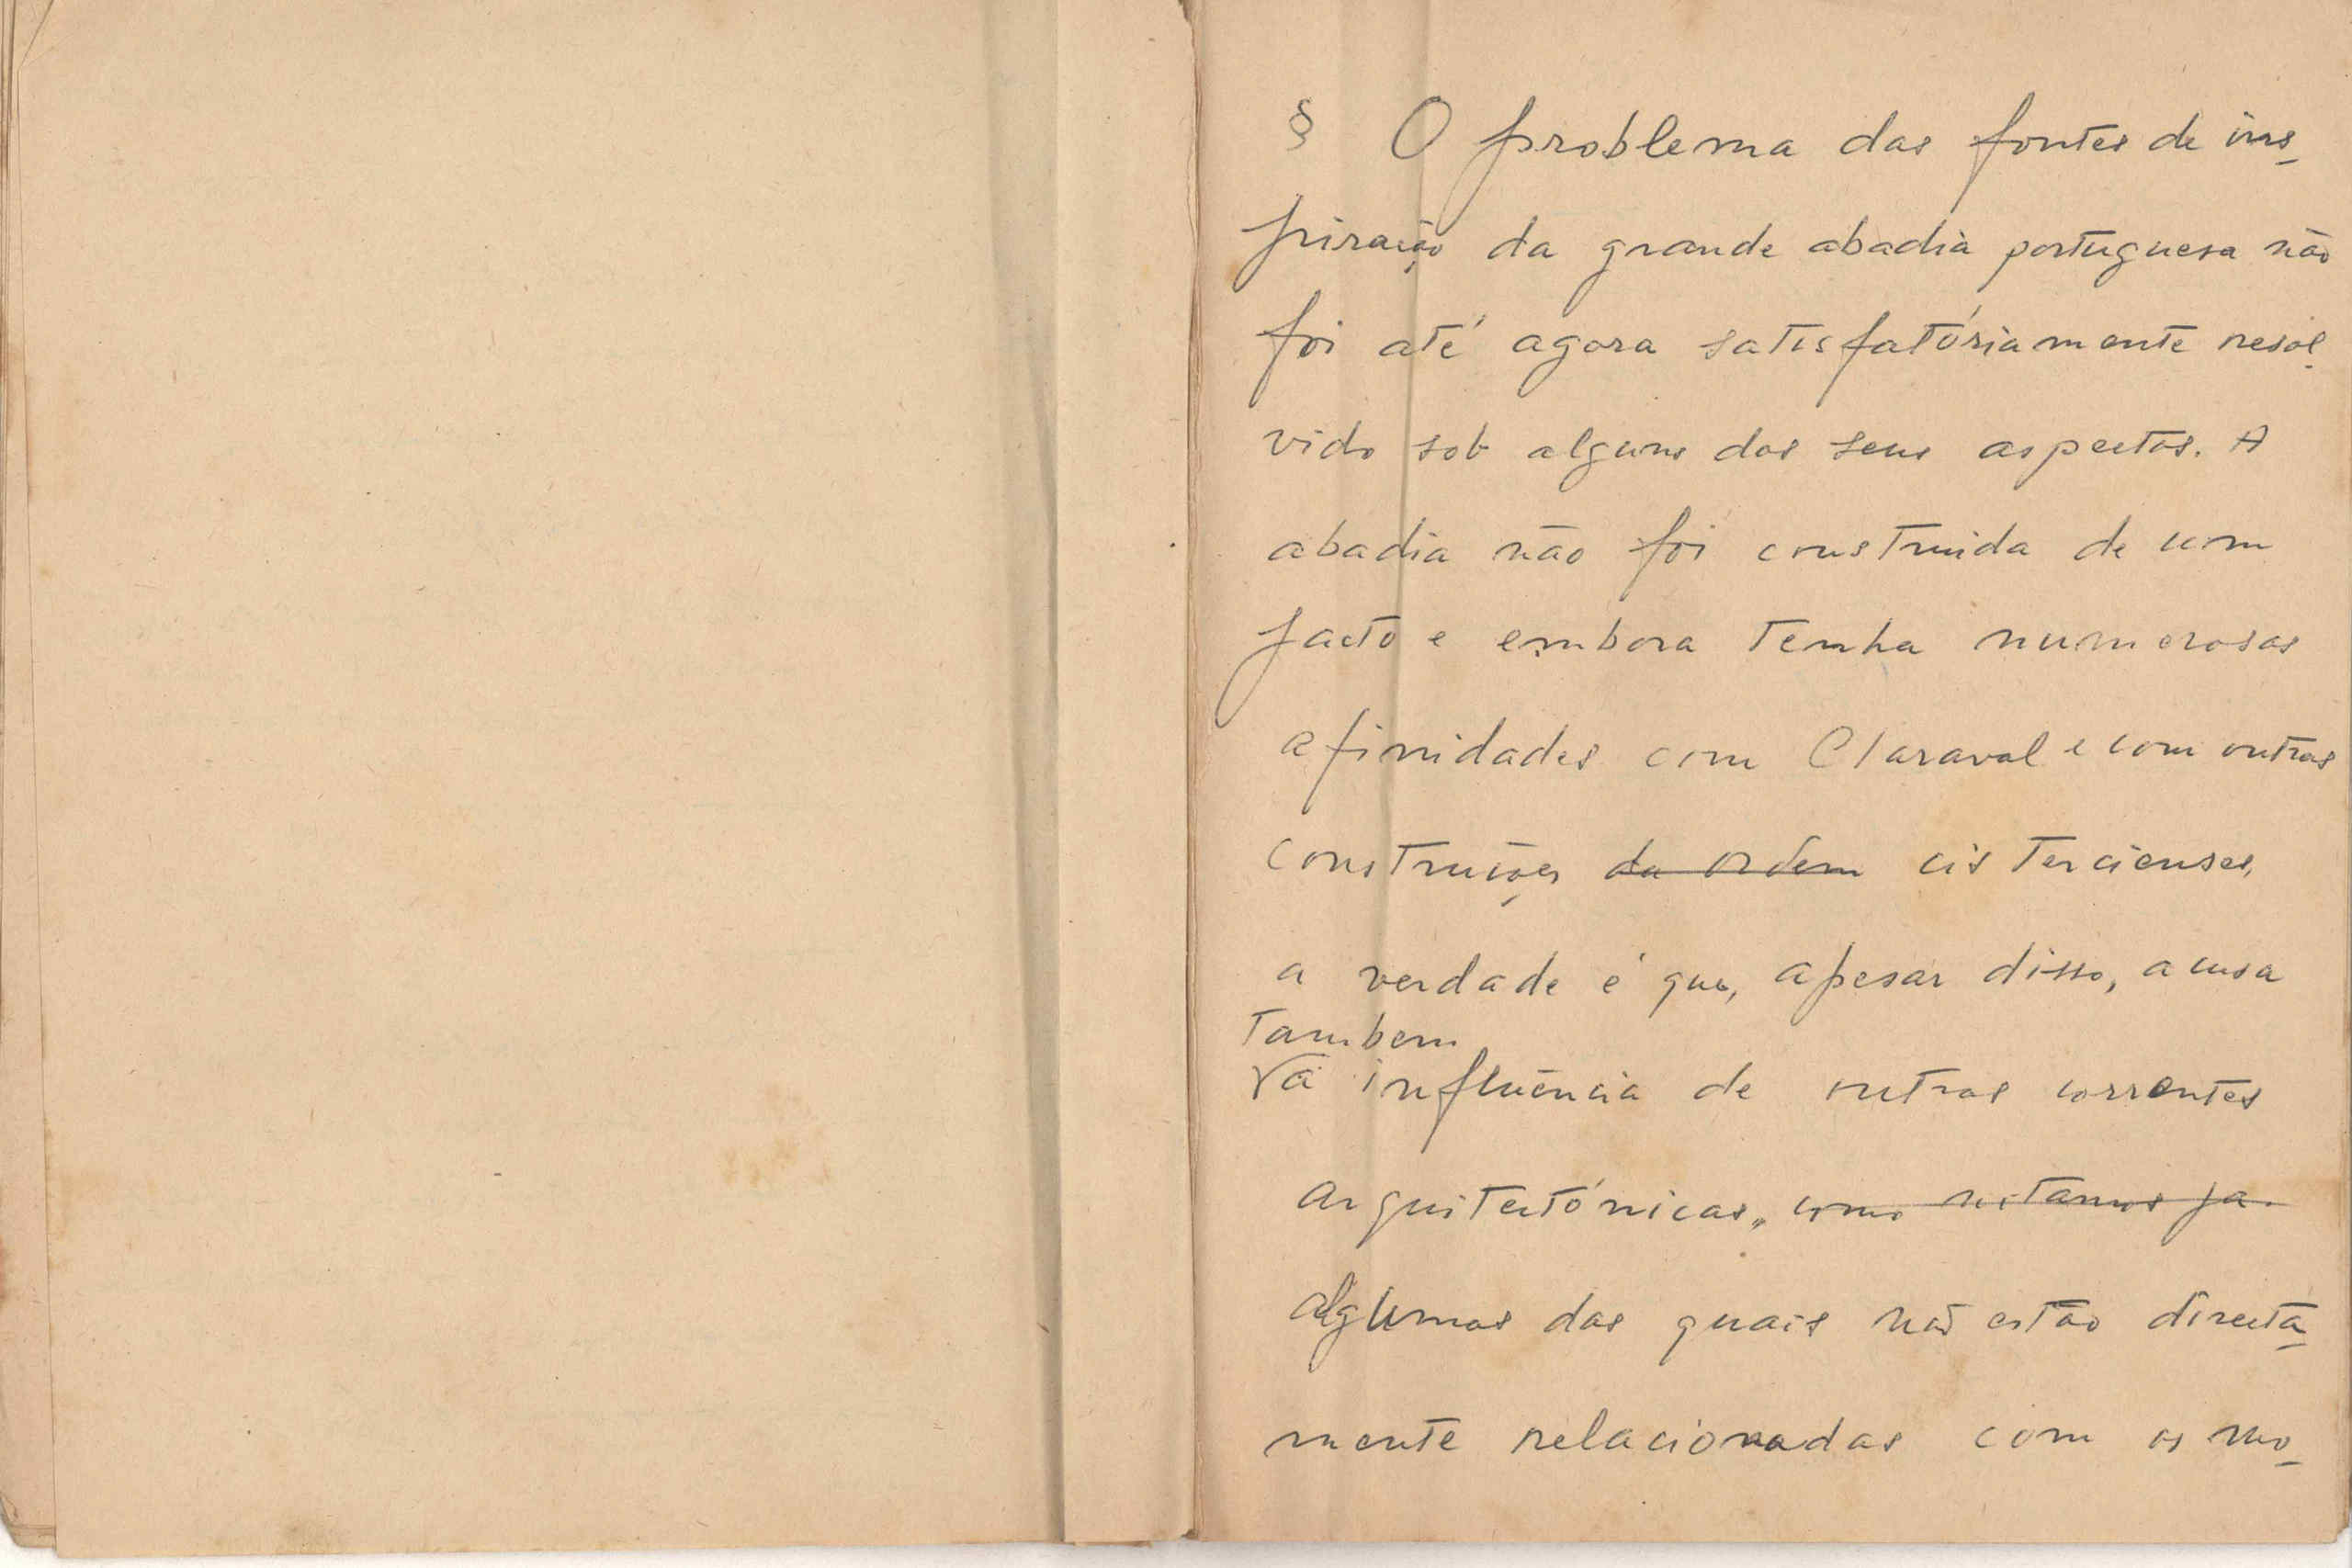 § O problema das fontes de ins-
piração da grande abadia portuguesa não
foi até agora satisfatóriamente resol-
vido sob alguns dos seus aspectos. A
abadia não foi construida de um
jacto e embora tenha numerosas
afinidades com Claraval e com outras
construções da ordem cistercienses,
a verdade é que, apesar disso, acusa
tambem
a influência de outras correntes
arquitectónicas, como notamos já.
algumas das quais não estão directa-
mente relacionadas com os mo-